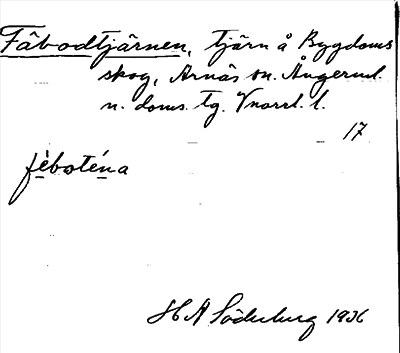 Fäbodtjärnen, tjärn å Bygdoms
skog, Arnäs sn. Ångerml.
n. doms. tg. Vnorrl. l.
17
fèboténa
H A Söderberg 1936